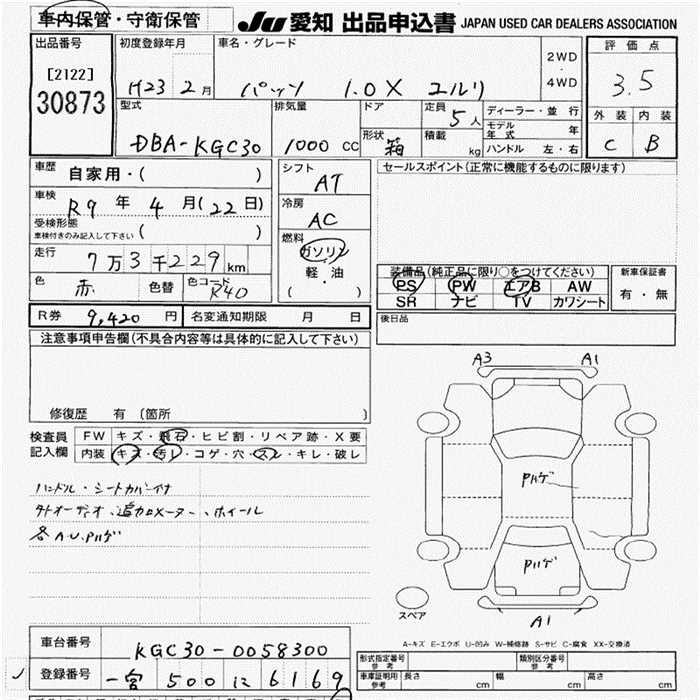 車内保管・守衛保管
JU 愛知 出品申込書 JAPAN USED CAR DEALERS ASSOCIATION
出品番号
[2122]
30873
初度登録年月
H23 2月
車名・グレード
パッソ 1.0X ユルリ
2WD
・
4WD
評価点
3.5
外装 内装
C B
型式
DBA-KGC30
排気量
1000 CC
ドア
形状
箱
定員
5人
積載
kg
ディーラー・並行
モデル年式 年
ハンドル 左・右
車歴
自家用・( )
車検
R9年4月(22日)
受検形態
車検付きのみ記入して下さい ( )
走行
7万3千229km
色
赤
色替
色コード
R40
シフト
AT
冷房
AC
燃料
ガソリン
軽・油
( )
セールスポイント(正常に機能するものに限ります)
装備品(純正品に限り○をつけてください)
PS PW エアB AW
SR ナビ TV カワシート
新車保証書
有・無
R券 9,420円
名変通知期限 月 日
後日品
注意事項申告欄(不具合内容等は具体的に記入して下さい)
修復歴 有(箇所 )
検査員記入欄
FW キズ・飛石・ヒビ割・リペア跡・X要
内装 キズ・汚レ・コゲ・穴・スレ・キレ・破レ
ハンドル・シートカバー付
外オーディオ、追加メーター、ホイール
各A.U.Pハゲ
A3 A1
Pハゲ
Pハゲ
A1
スペア
A-キズ E-エクボ U-凹み W-補修跡 S-サビ C-腐食 XX-交換済
車台番号
KGC30-0058300
登録番号
一宮 500 に 6169
形式指定番号
参考
類別区分番号
参考
車庫証明用
参考
長さ cm 幅 cm 高さ cm